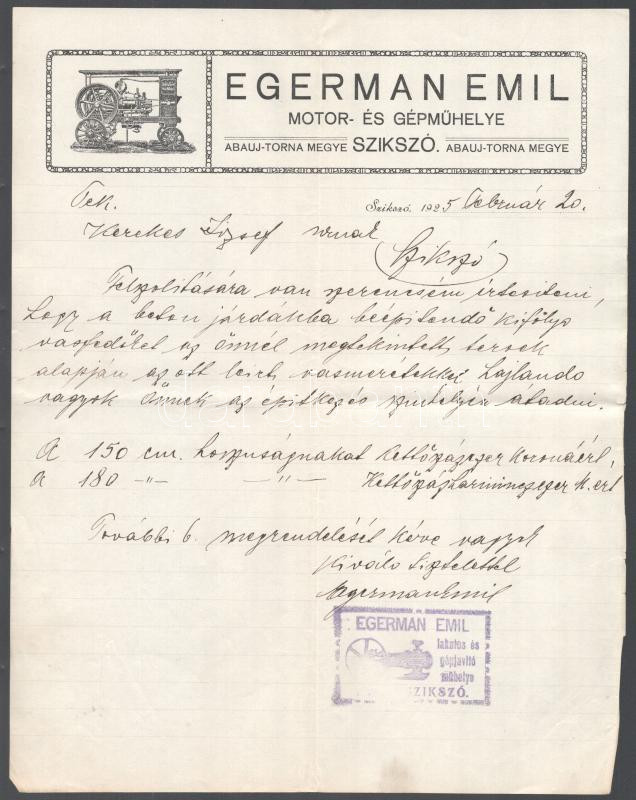 EGERMAN EMIL
MOTOR- ÉS GÉPMŰHELYE
ABAUJ-TORNA MEGYE SZIKSZÓ. ABAUJ-TORNA MEGYE
Tek. Szikszó, 1925 Február 20.
Kerekes József urnak
Szikszó
Felszolitására van szerencsém értesiteni,
hogy a beton járdákba beépitendő kifolyo
vasfedőket az önnel megtekintett tervek
alapján az ott leirt vasméretekkel hajlando
vagyok Önnek az épitkezés szinhelyén átadni.
A 150 cm. hosszuságnakat Kettőszázezer koronáért,
A 180 -"- -"- Kettőszázharmincezer K.ért
További b. megrendelését kérve vagyok
Kiváló tisztelettel
Egerman Emil
EGERMAN EMIL
lakatos és
gépjavitó
műhelye
SZIKSZÓ.